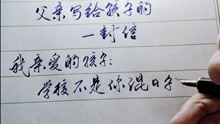 父亲写给孩子的
一封信
我亲爱的孩子:
学校不是你混日子